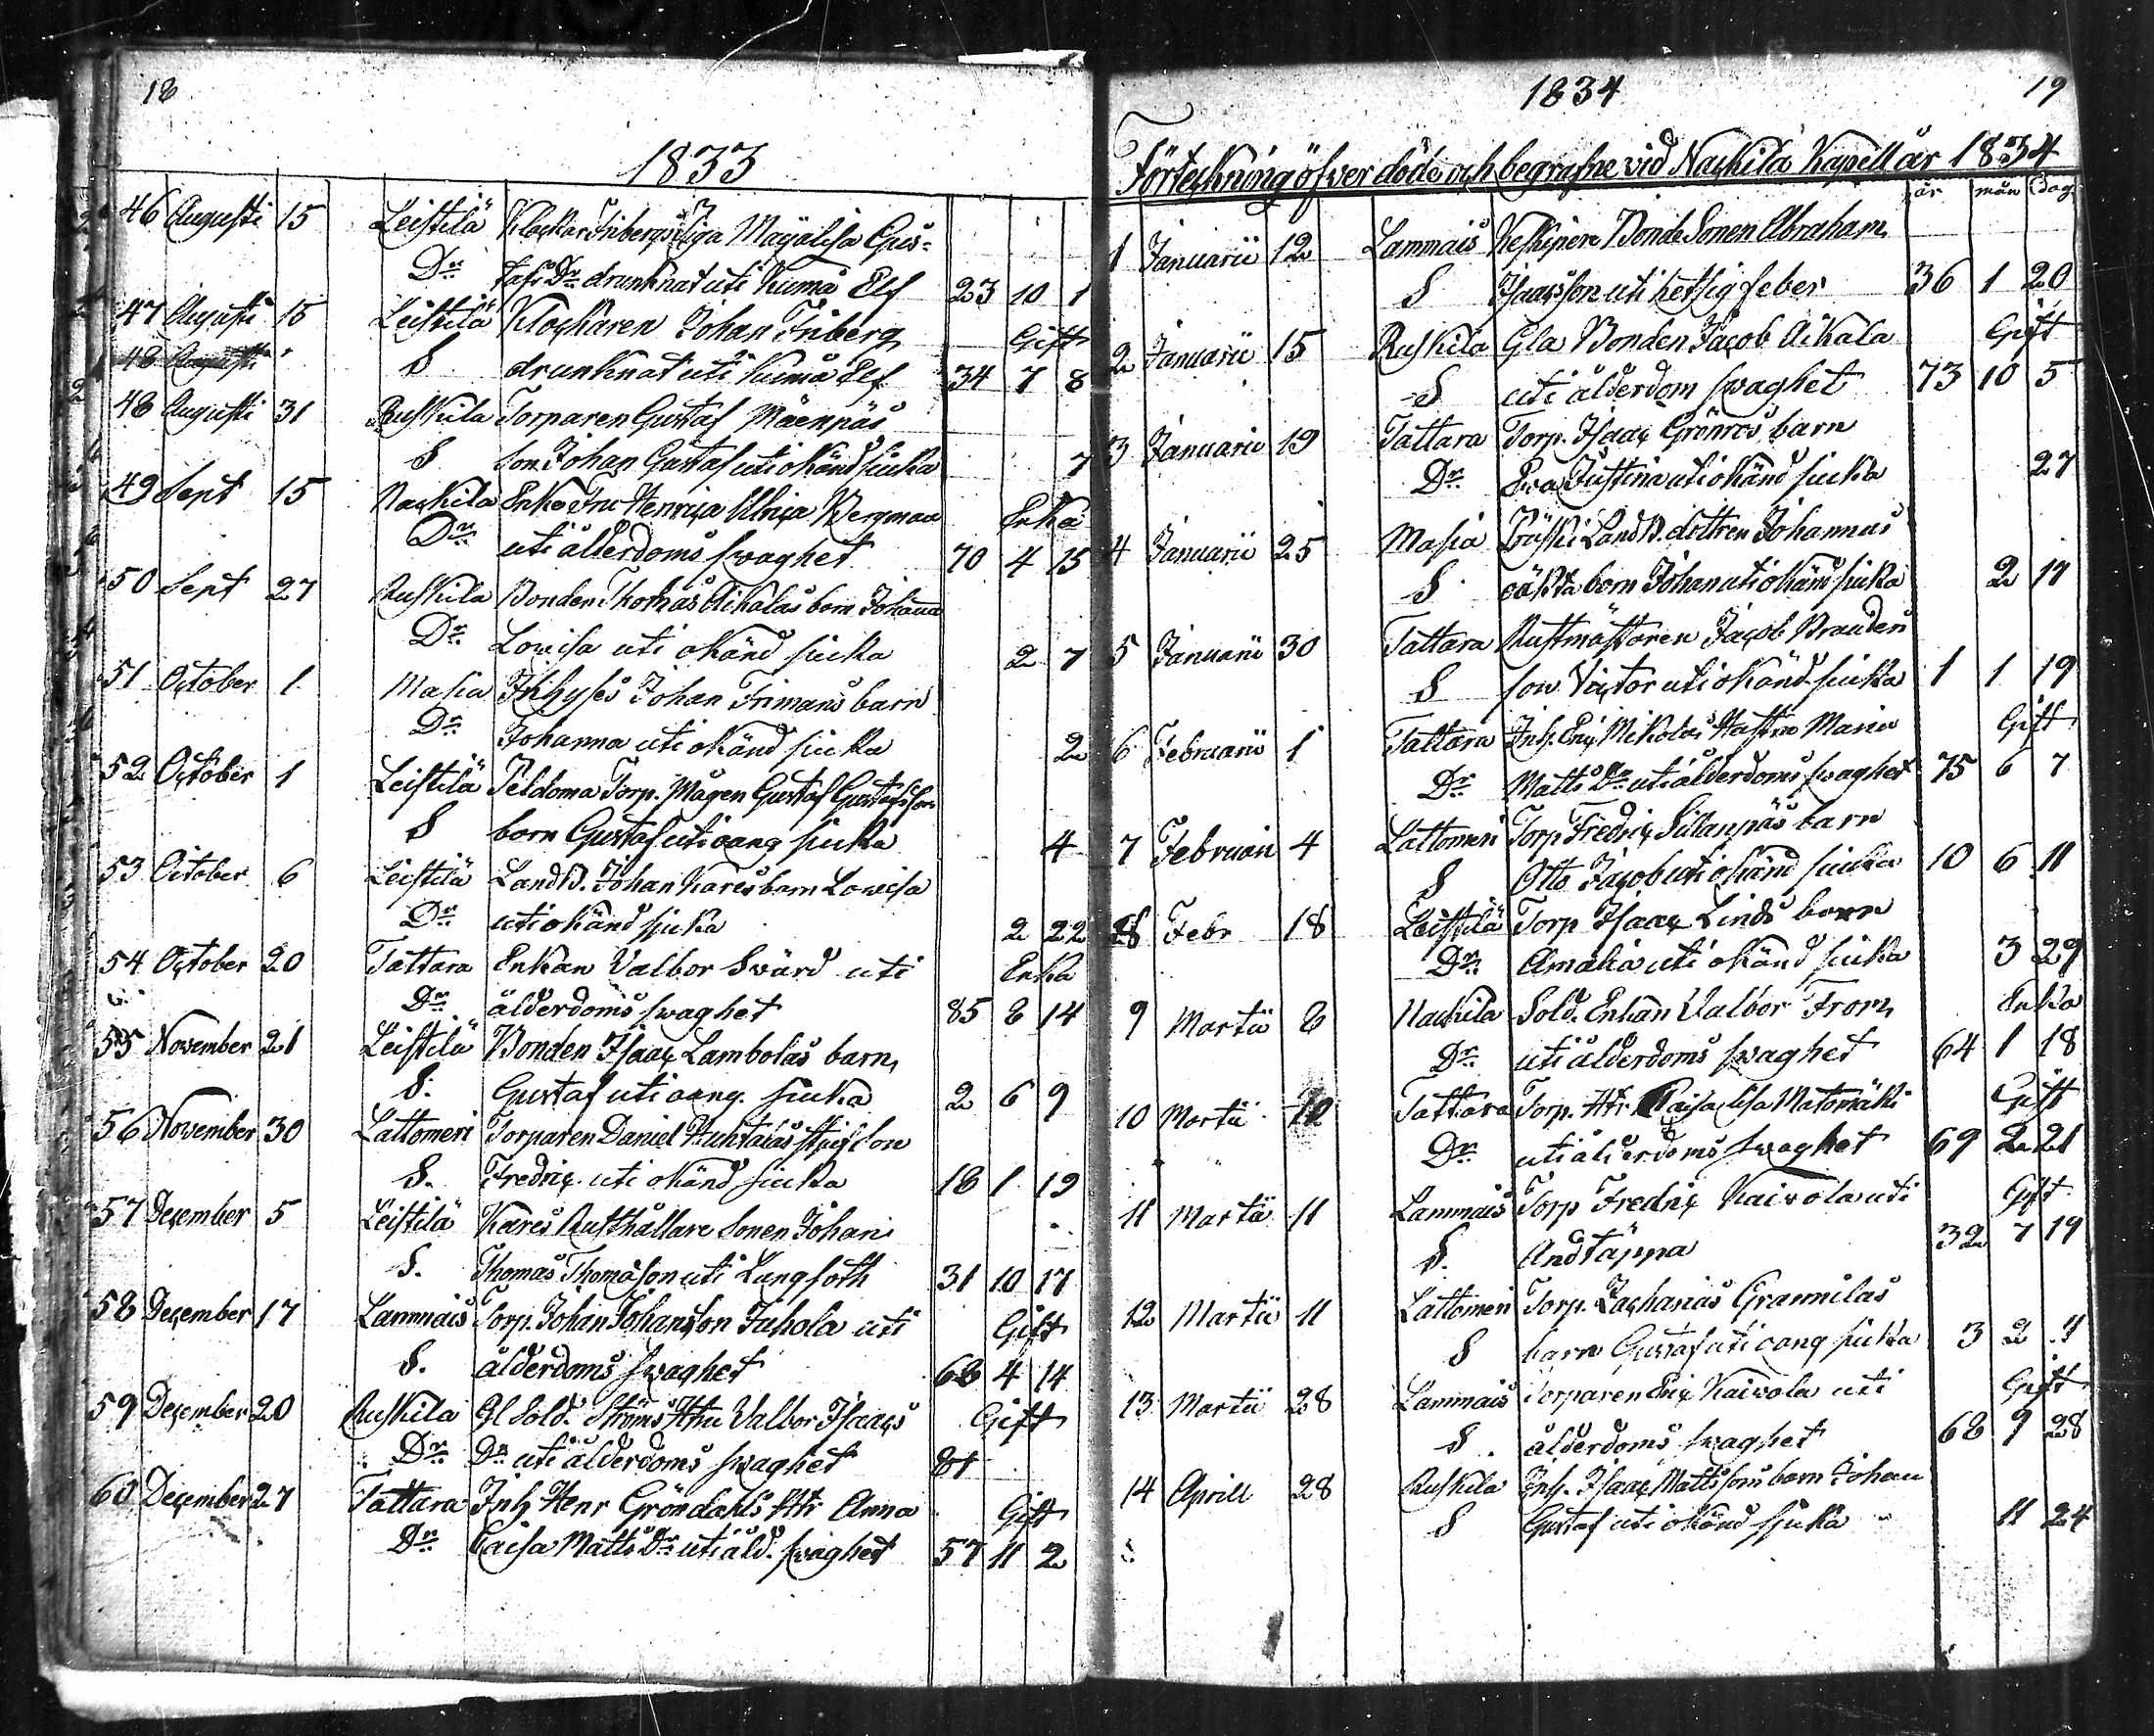 18
1833
46 Augusti 15 Leistilä Klockar Fribergs Piga Majalisa Gus-
Dr. tafs Dr. drunknat uti Kumå Elf 23 10 1
47 Augusti 15 Leistilä Klockaren Johan Friberg Gift
48 Augusti S drunknat uti Kumå Elf 34 7 8
48 Augusti 31 Ruskila Torparen Gustaf Mäenpäs
S Son Johan Gustaf uti okänd sjuka 7
49 Sept 15 Nackila Enke Fru Henrica Ulrica Bergman Enka
Dr. uti ålderdoms swaghet 70 4 15
50 Sept 27 Ruskila Bonden Thomas Aikalas barn Johanna
Dr. Lowisa uti okänd sjuka 2 7
51 October 1 Masia Inhyses Johan Frimans barn
Dr. Johanna uti okänd sjuka 2
52 October 1 Leistilä Peldoma Torp. Mågen Gustaf Gustafsson
S barn Gustaf uti oang sjuka 4
53 October 6 Leistilä LandB. Johan Kares barn Lowisa
Dr. uti okänd sjuka 2 22
54 October 20 Tattara Enkan Valbor Swärd uti Enka
Dr. ålderdoms swaghet 85 8 14
55 November 21 Leistilä Bonden Isaac Lambolas barn
S. Gustaf uti oang. sjuka 2 6 9
56 November 30 Lattomeri Torparen Daniel Huhtalas Stjufson
S. Fredric uti okänd sjuka 18 1 19
57 December 5 Leistilä Kares Rusthållare Sonen Johan
S. Thomas Thomasson uti Lungsoth 31 10 17
58 December 17 Lammais Torp. Johan Johansson Juhola uti Gift
S. ålderdoms swaghet 68 4 14
59 December 20 Ruskila Gl Sold. Ströms Htru Valbor Isaacs Gift
Dr. Dr uti ålderdoms swaghet 81
60 December 27 Tattara Inh Henr Gröndahls Htr Anna Gift
Dr. Caisa Matts Dr uti åld. swaghet 57 11 2
1834 19
Förteckning öfver döde och begrafne vid Nackila Kapell år 1834
år mån dag
1 Januarii 12 Lammais Keskinere Bonde Sonen Abraham
S Isaacsson uti hetsig feber 36 1 20
2 Januarii 15 Ruskila Gla Bonden Jacob Aikala Gift
S uti ålderdom swaghet 73 10 5
3 Januarii 19 Tattara Torp. Isaac Grönros barn
Dr. Eva Justina uti okänd sjuka 27
4 Januarii 25 Masia LandB. dottren Johannas
S oäkta barn Johan uti okänd sjuka 2 17
5 Januarii 30 Tattara Rustmästaren Jacob Branders
S son Victor uti okänd sjuka 1 1 19
6 Februarii 1 Tattara Inh. Eric Mikolas Hustru Maria Gift
Dr. Matts Dr uti ålderdoms swaghet 75 6 7
7 Februari 4 Lattomeri Torp Fredric Sillanpäs barn
S Otto Jacob uti okänd sjuka 10 6 11
8 Febr 18 Leistilä Torp Isaac Linds barn
Dr. Amalia uti okänd sjuka 3 29
9 Martii 8 Nackila Sold. Enkan Valbor From Enka
Dr. uti ålderdoms swaghet 64 1 18
10 Martii Tattara Torp. Htr. Caisalisa Matomäki Gift
Dr uti ålderdoms swaghet 69 2 21
11 Martii 11 Lammais Torp Fredric Kaivola uti Gift
S. Andtäppa 32 7 19
12 Martii 11 Lattomeri Torp. Zacharias Grannilas
S barn Gustaf uti oang sjukka 3 2 4
13 Martii 28 Lammais Torparen Eric Kaivola uti Gift
S. ålderdoms swaghet 68 9 28
14 Aprill 28 Ruskila Inh. Isaac Mattssons barn Johan
S Gustaf uti okänd sjuka 11 24